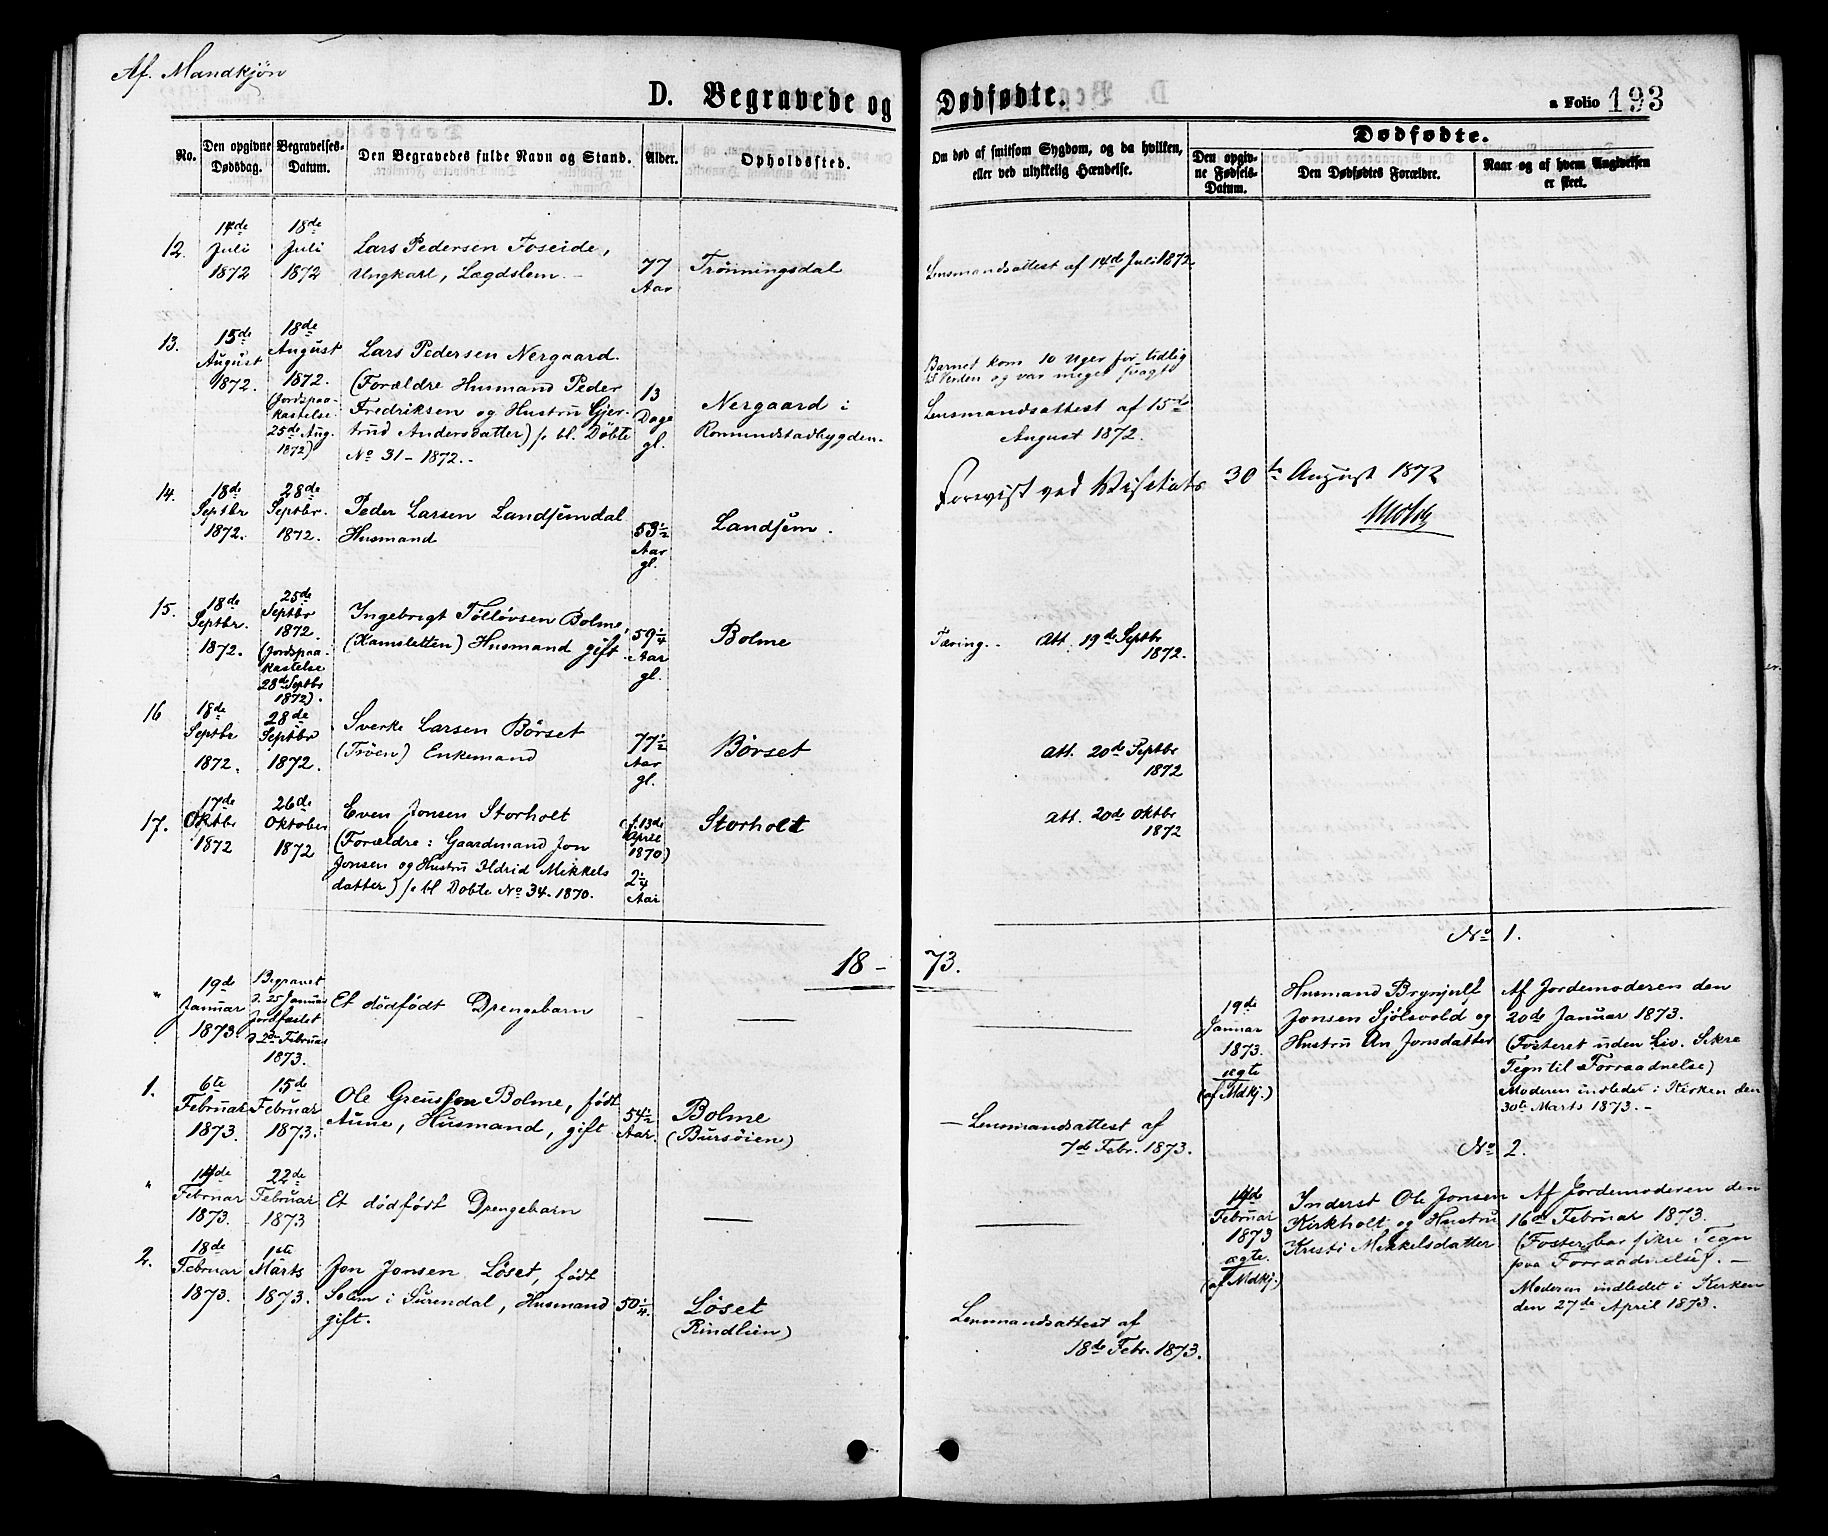 Af. Mandkjøn
D. Begravede og Dødfødte.
a Folio 193
No.
Den opgivne Dødsdag.
Begravelses-Datum.
Den Begravedes fulde Navn og Stand.
Alder.
Opholdssted.
Om død af smitsom Sygdom, og da hvilken,
eller ved ulykkelig Hændelse.
Dødfødte.
Den opgiv-
ne Fødsels-
Datum.
Den Dødfødtes Forældre.
Naar og af hvem Angivelsen
er skeet.
12.
14de
Juli
1872
18de
Juli
1872
Lars Pedersen Foseide,
Ungkarl, Lægdslem. -
77
Aar
Trønningsdal
Lensmandsattest af 14de Juli 1872
13.
15de
August
1872.
18de
August
1872.
(Jordspaa-
kastelse
25de Aug.
1872)
Lars Pedersen Nergaard.
(Forældre Husmand Peder
Fredriksen og Hustru Gjer-
trud Andersdatter) s. bl. Døbte
No 31 - 1872. -
13
Dage
gl.
Nergaard i
Romundstadbygden.
Barnet kom 10 Uger for tidlig
til Verden og var meget svagt
Lensmandsattest af 15de
August 1872.
Forevist ved Visitats 30te August 1872
14.
18de
Septbr
1872.
28de
Septbr.
1872.
Peder Larsen Landsemdal
Husmand
53½
Aar
gl.
Landsem.
15.
18de
Septbr.
1872.
25de
Septbr
1872.
(Jordspaa-
kastelse
28de Septbr
1872).
Ingebrigt Tølløvsen Bolme,
(Kamsletten) Husmand gift
59¼
Aar
gl.
Bolme
Tæring. - Att. 19de Septbr
1872.
16
18de
Septbr
1872.
28de
Septbr
1872.
Sverke Larsen Børset
(Trøen) Enkemand
77½
Aar
gl.
Børset
Att. 20de Septbr
1872
17.
17de
Oktbr
1872
26de
Oktober
1872
Even Jonsen Storholt
(Forældre: Gaardmand Jon
Jonsen og Hustru Ildrid Mikkels
datter) s. bl Døbte No 34 - 1870.
(f. 13de
April
1870)
2¼
Aar
Storholt
Att. 20de Oktbr
1872
18 - 73.
No 1.
"
19de
Januar
1873.
Begravet
d. 25 Januar
Jordfæstet
d. 2den Februar
1873.
Et dødfødt Drengebarn
19de
Januar
1873.
ægte
(af Mdkj.)
Husmand Brynjulf
Jonsen Sjølsvold og
Hustru An Jonsdatter
Af Jordemoderen den
20de Januar 1873.
(Fosteret uden Liv. Sikre
Tegn til Forraadnelse)
Moderen indledet i Kirken den
30te Marts 1873. -
1.
6te
Februar
1873.
15de
Februar
1873.
Ole Greussen Bolme, født
Aune, Husmand, gift
54½
Aar.
Bolme
(Bursøien)
- Lensmandsattest af
7de Febr. 1873.
No 2.
"
14de
Februar
1873.
22de
Februar
1873
Et dødfødt Drengebarn
14de
Februar
1873
ægte.
(af Mdkj.)
Inderst Ole Jonsen
Kirkholt og Hustru
Kristi Mikkelsdatter
Af Jordemoderen den
16de Februar 1873.
(Foster bar sikre Tegn
paa Forraadnelse). -
Moderen indledet i Kirken
den 27de April 1873.
2.
18de
Februar
1873.
1ste
Marts
1873.
Jon Jonsen Løset, født
Solem i Surendal, Husmand
gift.
50¼.
Løset
(Rindlien)
Lensmandsattest af
18de Febr. 1873.